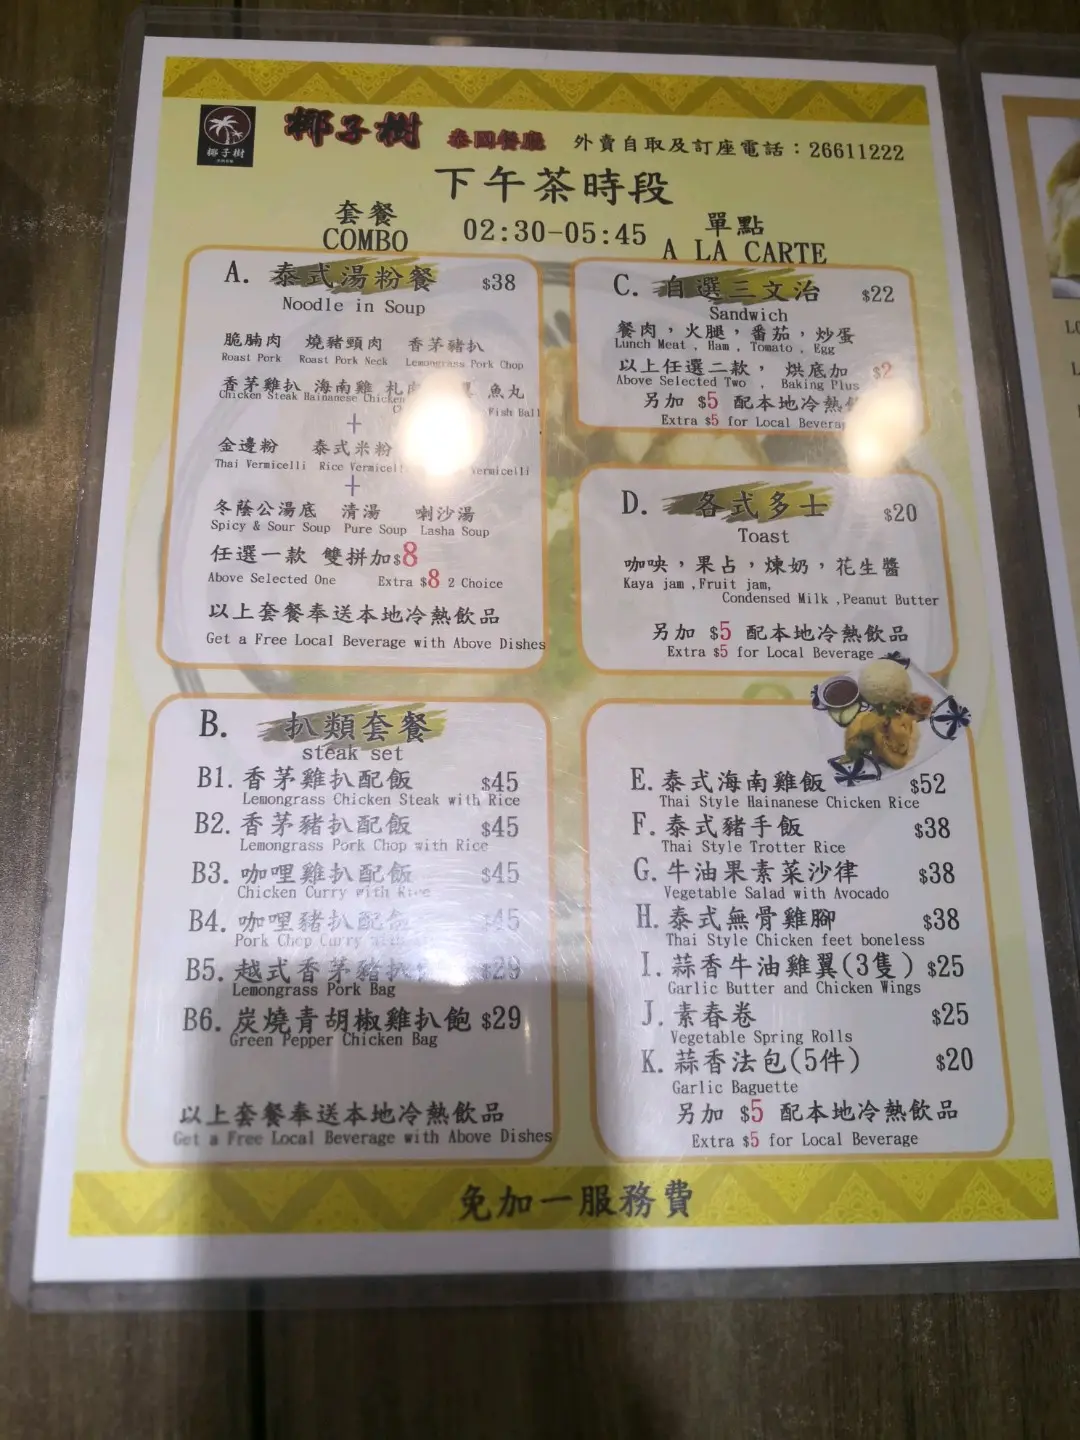 椰子樹 泰國餐廳 外賣自取及訂座電話：26611222
椰子樹
下午茶時段
套餐
COMBO
02:30-05:45
單點
A LA CARTE
A. 泰式湯粉餐 $38
Noodle in Soup
脆腩肉 燒豬頸肉 香茅豬扒
Roast Pork Roast Pork Neck Lemongrass Pork Chop
香茅雞扒 海南雞 札肉 翼 魚丸
Chicken Steak Hainanese Chicken Fish Ball
+
金邊粉 泰式米粉
Thai Vermicelli Rice Vermicelli Vermicelli
+
冬蔭公湯底 清湯 喇沙湯
Spicy & Sour Soup Pure Soup Lasha Soup
任選一款 雙拼加$8
Above Selected One Extra $8 2 Choice
以上套餐奉送本地冷熱飲品
Get a Free Local Beverage with Above Dishes
B. 扒類套餐
steak set
B1. 香茅雞扒配飯 $45
Lemongrass Chicken Steak with Rice
B2. 香茅豬扒配飯 $45
Lemongrass Pork Chop with Rice
B3. 咖哩雞扒配飯 $45
Chicken Curry with Rice
B4. 咖哩豬扒配飯 $45
Pork Chop Curry
B5. 越式香茅豬扒 $29
Lemongrass Pork Bag
B6. 炭燒青胡椒雞扒飽 $29
Green Pepper Chicken Bag
以上套餐奉送本地冷熱飲品
Get a Free Local Beverage with Above Dishes
C. 自選三文治 $22
Sandwich
餐肉，火腿，番茄，炒蛋
Lunch Meat , Ham , Tomato , Egg
以上任選二款， 烘底加 $2
Above Selected Two , Baking Plus
另加 $5 配本地冷熱飲
Extra $5 for Local Beverag
D. 各式多士 $20
Toast
咖央，果占，煉奶，花生醬
Kaya jam ,Fruit jam,
Condensed Milk ,Peanut Butter
另加 $5 配本地冷熱飲品
Extra $5 for Local Beverage
E. 泰式海南雞飯 $52
Thai Style Hainanese Chicken Rice
F. 泰式豬手飯 $38
Thai Style Trotter Rice
G. 牛油果素菜沙律 $38
Vegetable Salad with Avocado
H. 泰式無骨雞腳 $38
Thai Style Chicken feet boneless
I. 蒜香牛油雞翼(3隻) $25
Garlic Butter and Chicken Wings
J. 素春卷 $25
Vegetable Spring Rolls
K. 蒜香法包(5件) $20
Garlic Baguette
另加 $5 配本地冷熱飲品
Extra $5 for Local Beverage
免加一服務費